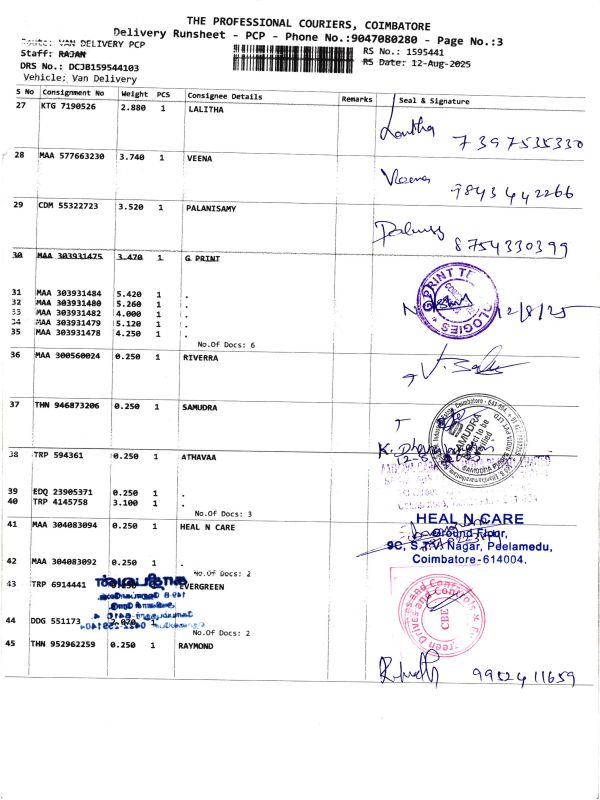 THE PROFESSIONAL COURIERS, COIMBATORE
Delivery Runsheet - PCP - Phone No.:9047080280 - Page No.:3
Route: VAN DELIVERY PCP
Staff: RAJAN
RS No.: 1595441
DRS No.: DCJB159544103
RS Date: 12-Aug-2025
Vehicle: Van Delivery
S No Consignment No Weight PCS Consignee Details Remarks Seal & Signature
27 KTG 7190526 2.880 1 LALITHA
Lalitha 7397535330
28 MAA 577663230 3.740 1 VEENA
Veena 9843442266
29 CDM 55322723 3.520 1 PALANISAMY
8754330399
30 MAA 303931475 3.470 1 G PRINT
31 MAA 303931484 5.420 1 .
32 MAA 303931480 5.260 1 .
33 MAA 303931482 4.000 1 .
12/8/25
34 MAA 303931479 5.120 1 .
35 MAA 303931478 4.250 1 .
No.Of Docs: 6
36 MAA 300560024 0.250 1 RIVERRA
37 THN 946873206 0.250 1 SAMUDRA
SAMUDRA
38 TRP 594361 0.250 1 ATHAVAA
39 EDQ 23905371 0.250 1 .
40 TRP 4145758 3.100 1 .
No.Of Docs: 3
41 MAA 304083094 0.250 1 HEAL N CARE
HEAL N CARE
Ground Floor,
9C, S.T.V. Nagar, Peelamedu,
Coimbatore-614004.
42 MAA 304083092 0.250 1 .
No.Of Docs: 2
43 TRP 6914441 EVERGREEN
CBE
44 DDG 551173 2.070 1 .
No.Of Docs: 2
45 THN 952962259 0.250 1 RAYMOND
9952411659